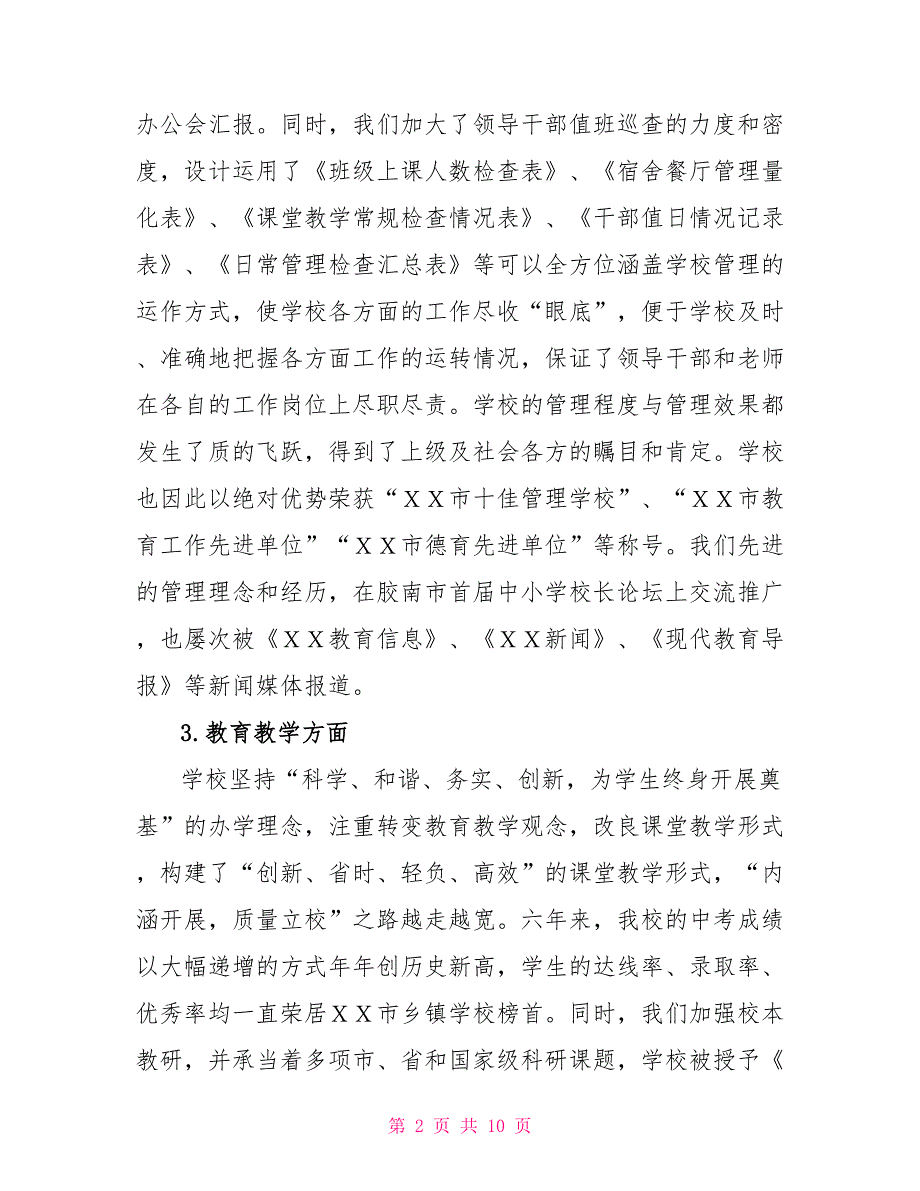 办公会汇报。同时，我们加大了领导干部值班巡查的力度和密
度，设计运用了《班级上课人数检查表》、《宿舍餐厅管理量
化表》、《课堂教学常规检查情况表》、《干部值日情况记录
表》、《日常管理检查汇总表》等可以全方位涵盖学校管理的
运作方式，使学校各方面的工作尽收“眼底”，便于学校及时
、准确地把握各方面工作的运转情况，保证了领导干部和老师
在各自的工作岗位上尽职尽责。学校的管理程度与管理效果都
发生了质的飞跃，得到了上级及社会各方的瞩目和肯定。学校
也因此以绝对优势荣获“ＸＸ市十佳管理学校”、“ＸＸ市教
育工作先进单位”“ＸＸ市德育先进单位”等称号。我们先进
的管理理念和经历，在胶南市首届中小学校长论坛上交流推广
，也屡次被《ＸＸ教育信息》、《ＸＸ新闻》、《现代教育导
报》等新闻媒体报道。
3.教育教学方面
学校坚持“科学、和谐、务实、创新，为学生终身开展奠
基”的办学理念，注重转变教育教学观念，改良课堂教学形式
，构建了“创新、省时、轻负、高效”的课堂教学形式，“内
涵开展，质量立校”之路越走越宽。六年来，我校的中考成绩
以大幅递增的方式年年创历史新高，学生的达线率、录取率、
优秀率均一直荣居ＸＸ市乡镇学校榜首。同时，我们加强校本
教研，并承当着多项市、省和国家级科研课题，学校被授予《
第 2 页 共 10 页